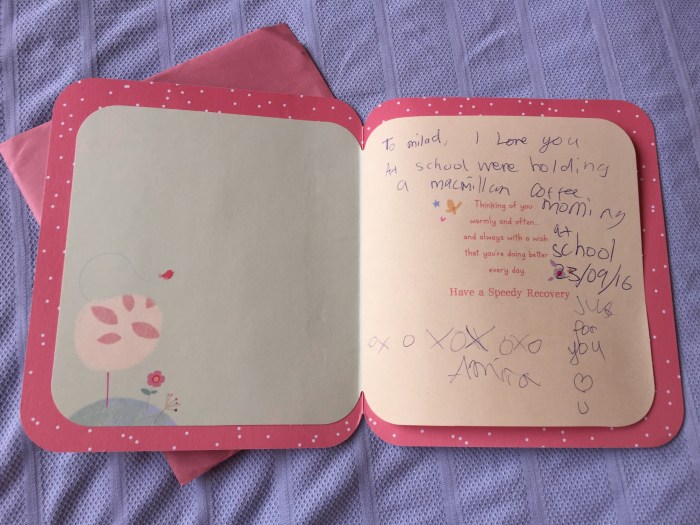 To milad, I Love you
At school were holding
a macmillan coffee
morning
at
school
23/09/16
Thinking of you
warmly and often...
and always with a wish
that you're doing better
every day.
Have a Speedy Recovery
for
you
♡
U
ox o XOX oxo